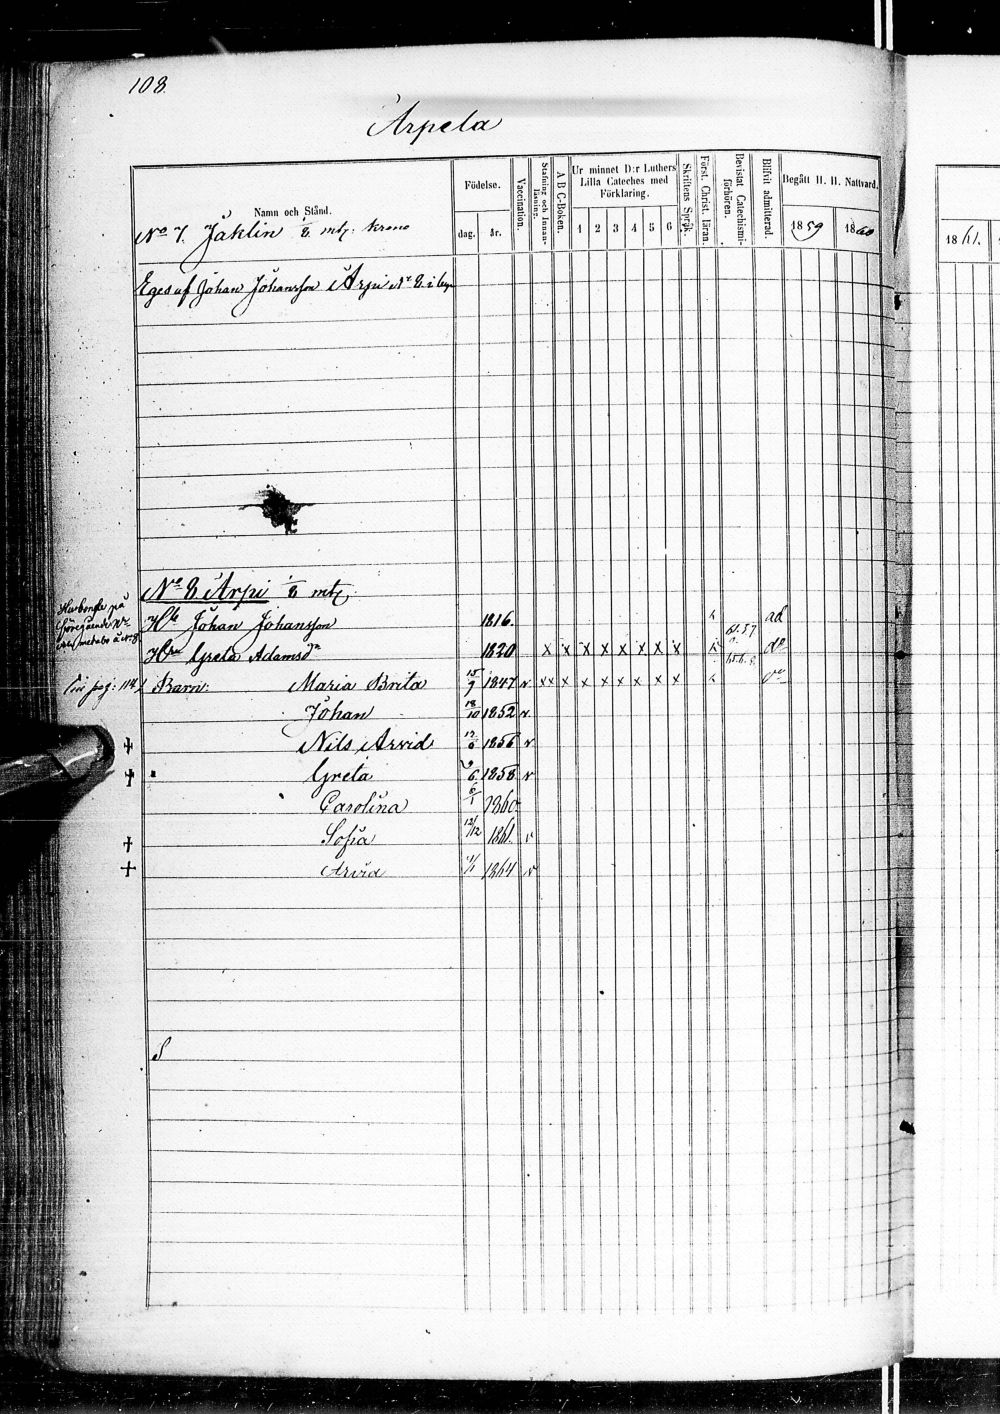 108.
Arpela
Namn och Stånd.
Födelse.
dag.
år.
Vaccination.
Stafning och Innan-läsning.
A B C-Boken.
Ur minnet D:r Luthers
Lilla Cateches med
Förklaring.
1 2 3 4 5 6
Skriftens Språk.
Först. Christ. läran.
Bevistat Catechismi-förhören.
Blifvit admitterad.
Begått H. H. Nattvard.
1859
1860
1861.
No 7. Jaklin 1/8 mtl. krono
Eges af Johan Johansson Arpi No 8 i
No 8 Arpi 1/8 mtl.
Husbonde på
föregående No
Hb Johan Johansson 1816. ad
Hru Greta Adamsdr 1820 x x x x x x x x do
Barn: Maria Brita 15/9 1847 v x x x x x x x x x do
Johan 18/10 1852 v
Nils Arvid 1856 v
Greta 1858 v
Carolina 6/1 1860
Sofia 12/12 1861. v
Arvid 1864 v